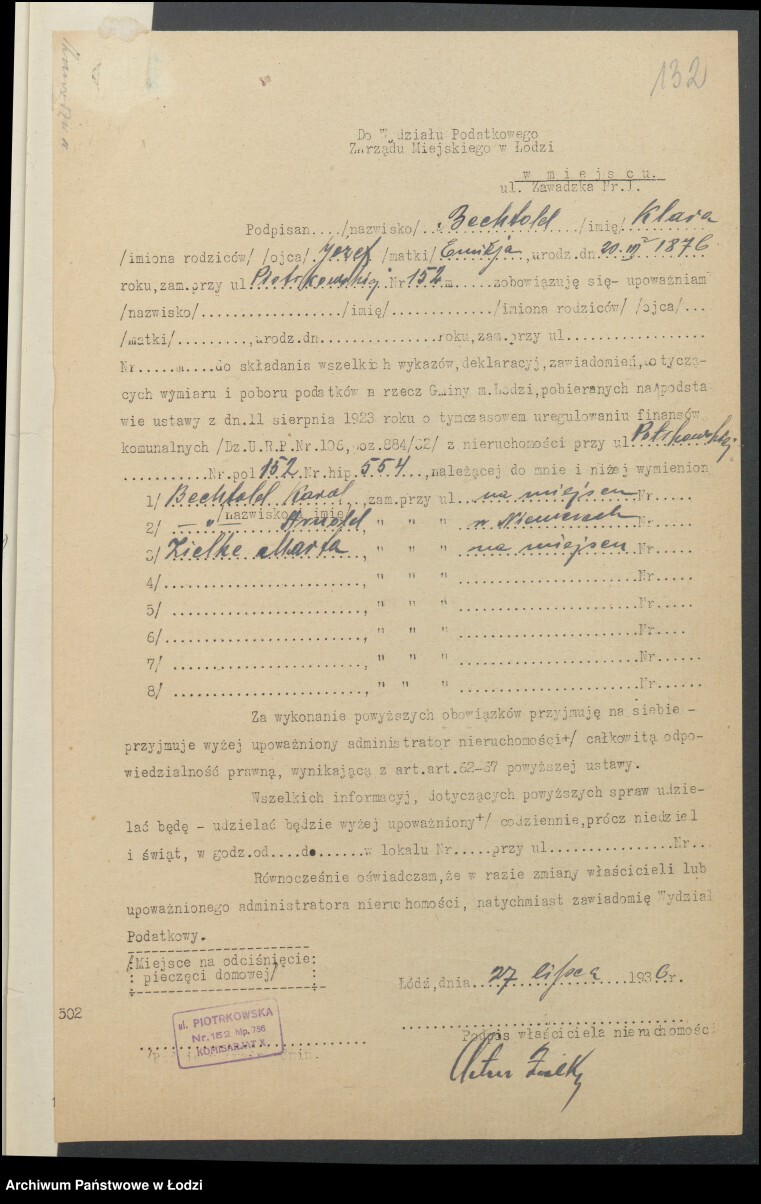 132
Do Wydziału Podatkowego
Zarządu Miejskiego w Łodzi
w miejscu.
ul. Zawadzka Nr.1.
Podpisan..../nazwisko/..Bechtold.../imię/ Klara
/imiona rodziców/ /ojca/ Józef /matki/ Emilja.,urodz.dn.20.IV 1876
roku,zam.przy ul Piotrkowskiej Nr 152.m.....zobowiązuję się- upoważniam
/nazwisko/................../imię/............./imiona rodziców/ /ojca/....
/matki/.........,urodz.dn...............roku,zam.przy ul..................
Nr......m....do składania wszelkich wykazów,deklaracyj,zawiadomień,dotyczą-
cych wymiaru i poboru podatków n rzecz Gminy m.Łodzi,pobieranych na podsta
wie ustawy z dn.11 sierpnia 1923 roku o tymczasowem uregulowaniu finansów
komunalnych /Dz.U.R.P.Nr.106,poz.884/32/ z nieruchomości przy ul Piotrkowskiej
...........Nr.pol 152.Nr.hip.554..,należącej do mnie i niżej wymienion
1/ Bechtold Karol.,zam.przy ul...na miejscu Nr.....
/nazwisko i imię/
2/ — „ — Arnold , " " " w Niemczech Nr.....
3/ Zielke Marta , " " " na miejscu Nr.....
4/ ......................., " " " ......................Nr.....
5/ ......................., " " " ......................Nr.....
6/ ......................., " " " ......................Nr....
7/ ......................., " " " ......................Nr.....
8/ ......................., " " " ......................Nr.....
Za wykonanie powyższych obowiązków przyjmuję na siebie -
przyjmuje wyżej upoważniony administrator nieruchomości+/ całkowitą odpo-
wiedzialność prawną, wynikającą z art.art.62-67 powyższej ustawy.
Wszelkich informacyj, dotyczących powyższych spraw udzie-
lać będę - udzielać będzie wyżej upoważniony+/ codziennie,prócz niedziel
i świąt, w godz.od....do......w lokalu Nr.....przy ul................Nr...
Równocześnie oświadczam,że w razie zmiany właścicieli lub
upoważnionego administratora nieruchomości, natychmiast zawiadomię Wydział
Podatkowy.
/Miejsce na odciśnięcie:
: pieczęci domowej/ :
Łódź,dnia..27 lipca...1936r.
502
ul. PIOTRKOWSKA
Nr. 152 hip. 756
KOMISARJAT X.
Podpis właściciela nieruchomości
Artur Zielke
Archiwum Państwowe w Łodzi